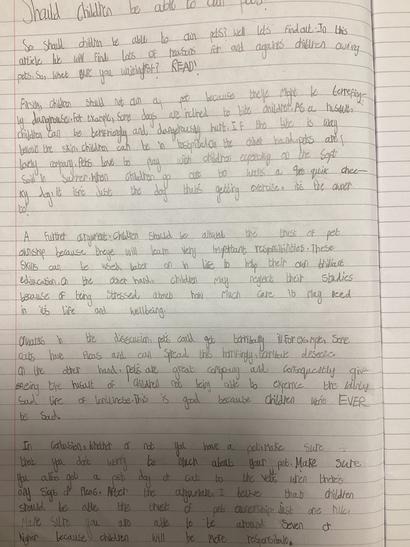 Should Children be able to own pets?
So should children be able to own pets? Well lets find out. In this
article we will find lots of reasons for and againts children owing
pets. So, what are you waiting for? READ!
Firstly, children should not own any pet because they might be terrefing-
ly dangerouse. For example, Some dogs are inclined to bite children. As a
children can be and dangerously hurt. If the bite is very
below the skin, children can be in hospital. On the other hand, pets are
lovely company. Pets love to play with children especially on the soft
Soil in Summer. When children go out to walk a quick chee-
ky dog, it isnt just the dog thats getting exercise, its the owner
to!
A further argument, Children should be allowed the trust of pet
ownership because theye will learn very important responsibilities. These
Skills can be used later on in life to help their own brilliant
edducation. On the other hand, children may neglect their Studies
because of being Stressed about how much care it may need
in its life and wellbeing.
in the disscussion, pets could get horribally ill. For example, Some
cats have fleas and can Spread this
On the other hand, pets are great company and
the of children not being able to the
Sad line of lonliness. This is good because children wont EVER
be Sad.
In Conlusion, Whether or not you have a pet, Make Sure
that you dont worry to much about your pet. Make Sure
you allways got a pet dog or cat to the vets when there's
any Sign of fleas. After the argument, I believe that children
should be able the trust of pet ownership. Just one rule,
Make Sure you are able to be around Seven or
higher because children will be more responsible.